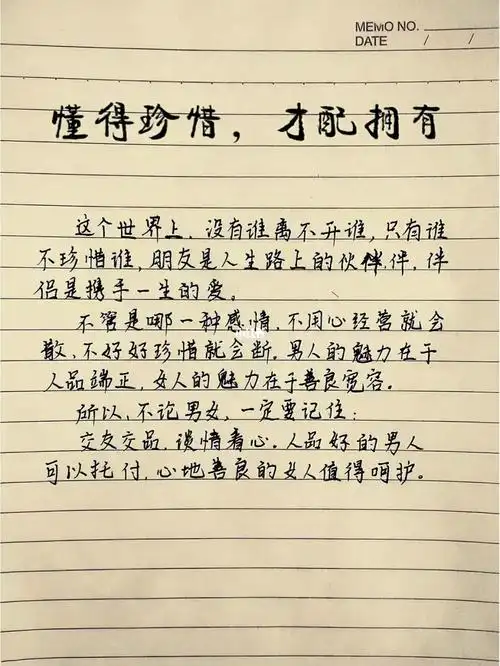 MEMO NO.
DATE / /
懂得珍惜，才配拥有
这个世界上，没有谁离不开谁，只有谁
不珍惜谁，朋友是人生路上的伙伴，伴
侣是携手一生的爱。
不管是哪一种感情，不用心经营就会
散、不好好珍惜就会断。男人的魅力在于
人品端正，女人的魅力在于善良宽容。
所以，不论男女，一定要记住：
交友交品，谈情看心。人品好的男人
可以托付，心地善良的女人值得呵护。